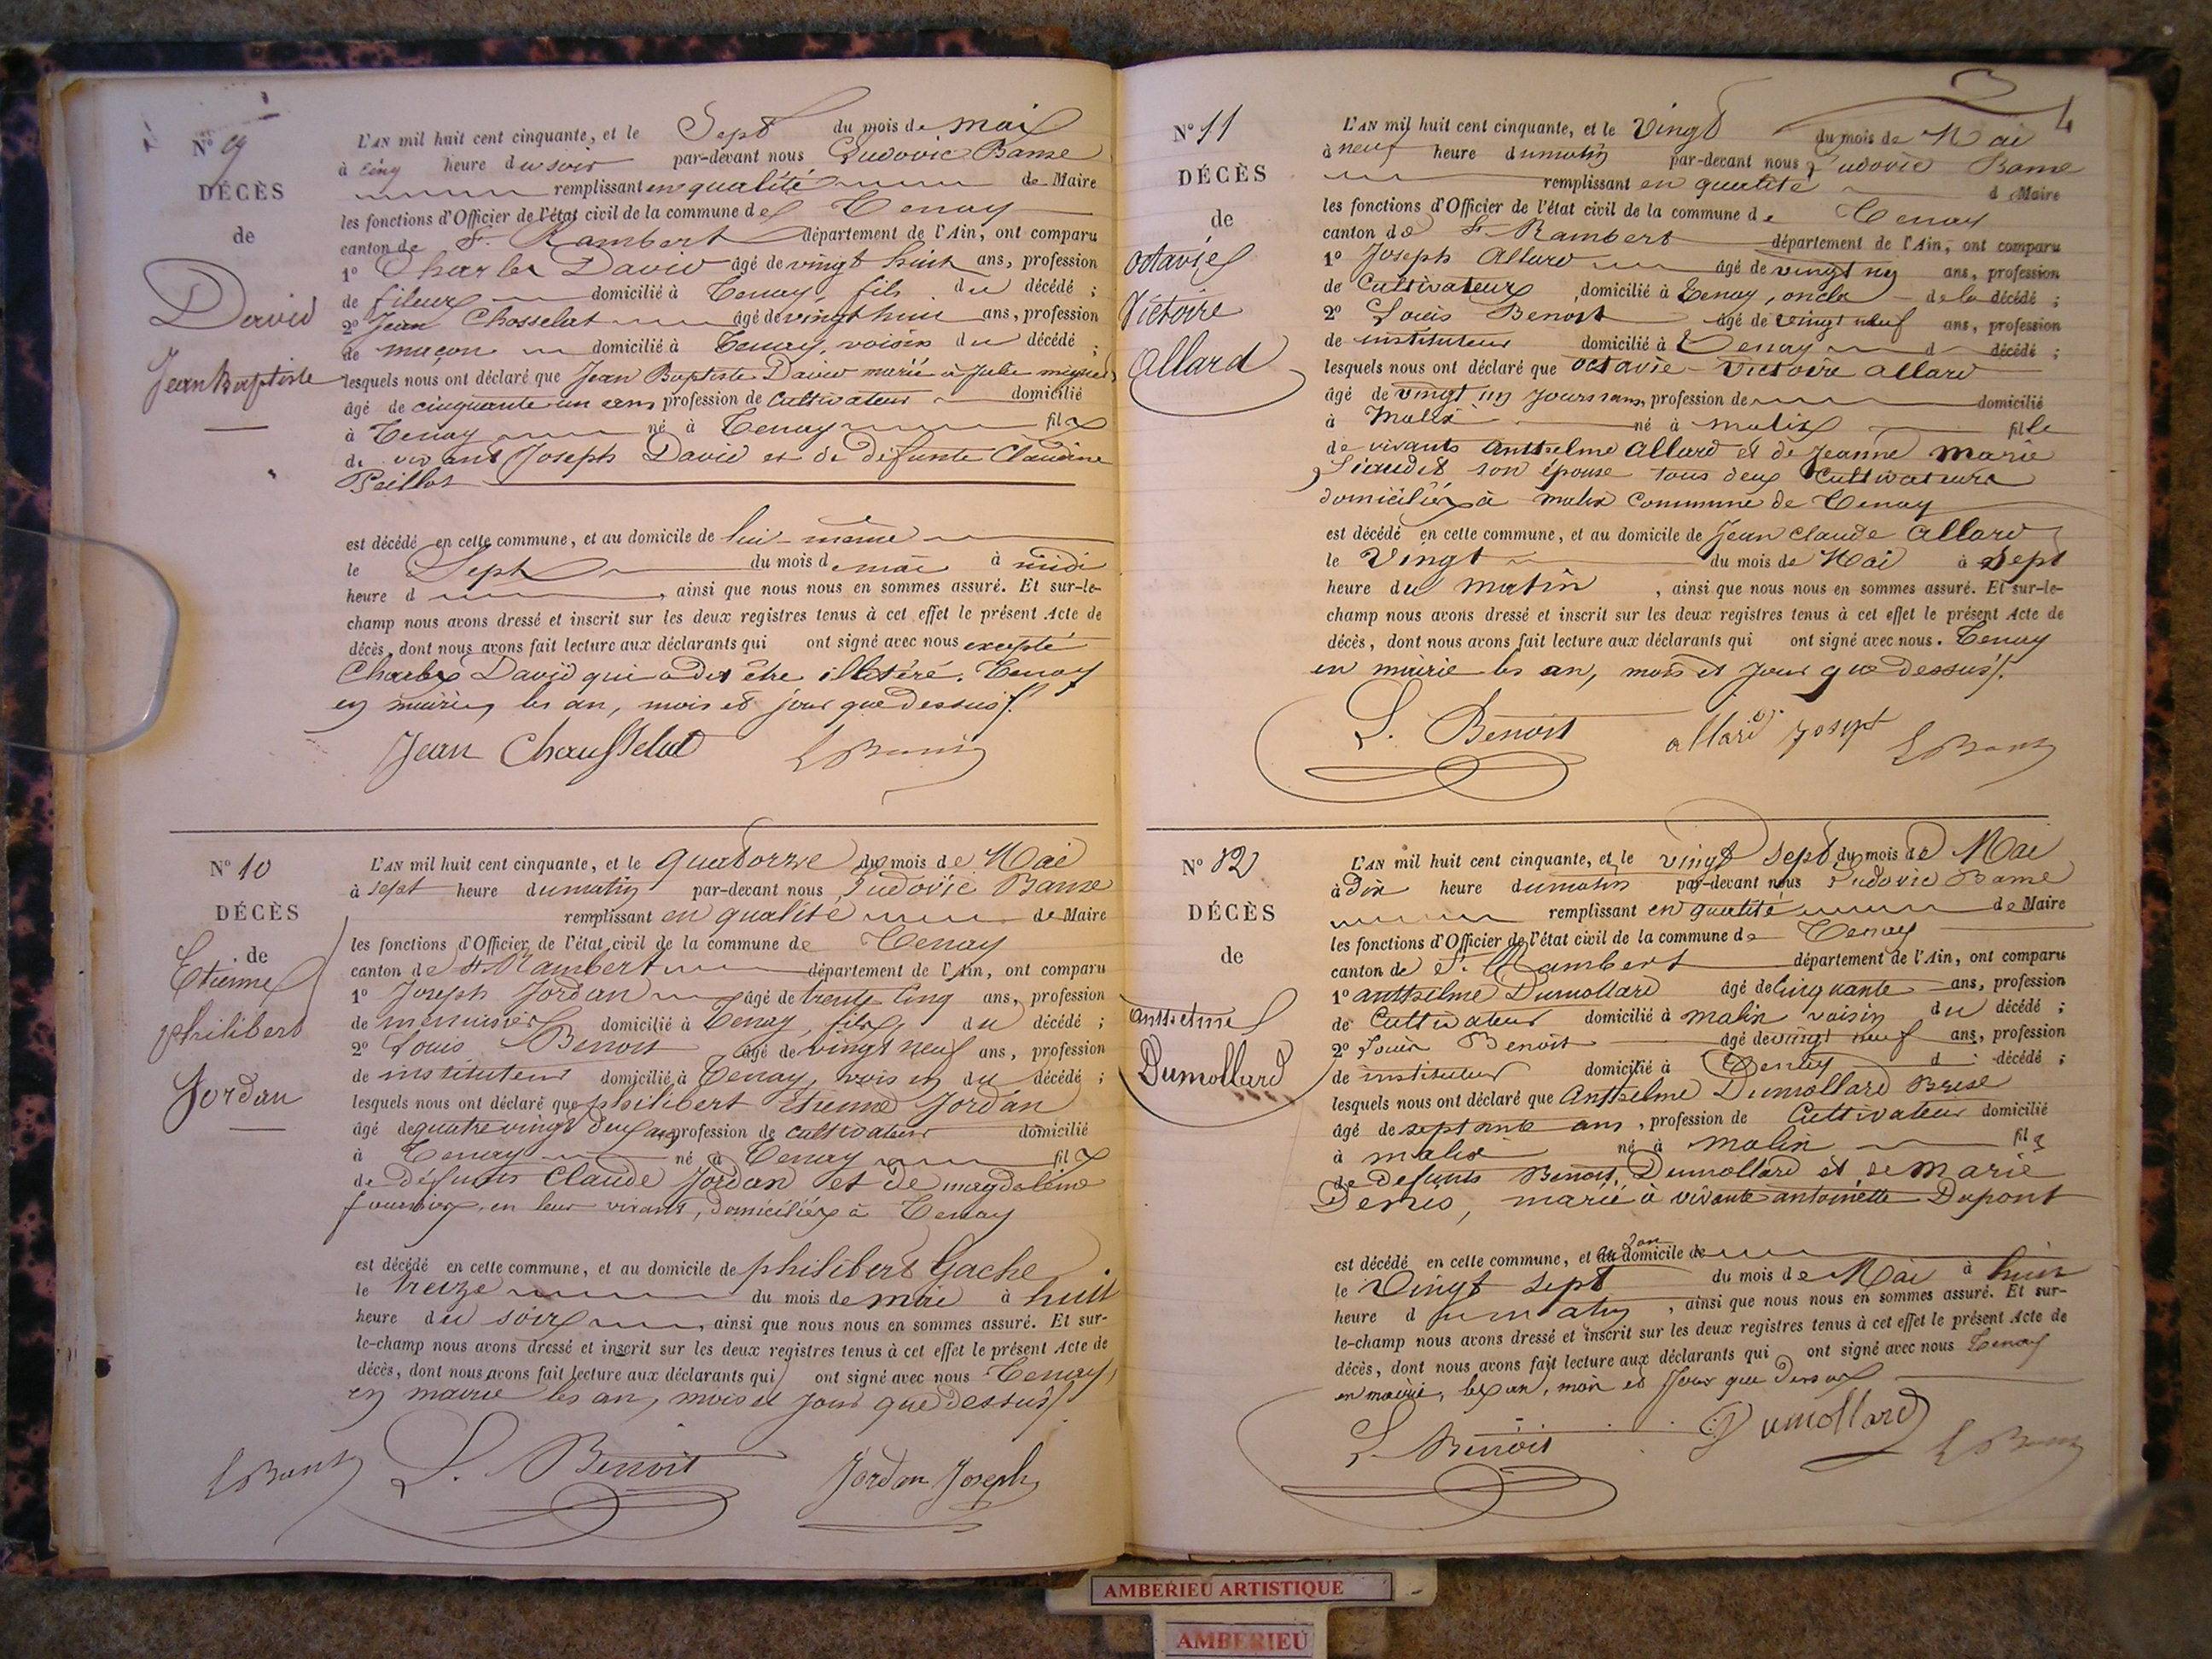 N° 9
DÉCÈS
de
David
Jean Baptiste
L'AN mil huit cent cinquante, et le Sept du mois de mai
à cinq heure du soir par-devant nous Ludovic Bonne
remplissant en qualité de Maire
les fonctions d'Officier de l'état civil de la commune de Tenay
canton de St. Rambert département de l'Ain, ont comparu
1° Charles David âgé de vingt huit ans, profession
de fileur domicilié à Tenay, fils du décédé ;
2° Jean Chosselat âgé de vingt huit ans, profession
de maçon domicilié à Tenay, voisin du décédé ;
lesquels nous ont déclaré que Jean Baptiste David marié à Julie
âgé de cinquante un ans profession de Cultivateur domicilié
à Tenay né à Tenay fils
de vivant Joseph David et de défunte Claudine
Peillot
est décédé en cette commune, et au domicile de lui-même
le Sept du mois de mai à midi
heure d , ainsi que nous nous en sommes assuré. Et sur-le-
champ nous avons dressé et inscrit sur les deux registres tenus à cet effet le présent Acte de
décès, dont nous avons fait lecture aux déclarants qui ont signé avec nous excepté
Charles David qui a dit être illetéré. Tenay
en mairie les an, mois et jour que dessus.
Jean Chausselat
N° 10
DÉCÈS
de
Etienne
philibert
Jordan
L'AN mil huit cent cinquante, et le quatorze du mois de Mai
à sept heure du matin par-devant nous Ludovic Bonne
remplissant en qualité de Maire
les fonctions d'Officier de l'état civil de la commune de Tenay
canton de St. Rambert département de l'Ain, ont comparu
1° Joseph Jordan âgé de trente cinq ans, profession
de menuisier domicilié à Tenay, fils du décédé ;
2° Louis Benoit âgé de vingt neuf ans, profession
de instituteur domicilié à Tenay, voisin du décédé ;
lesquels nous ont déclaré que philibert Etienne Jordan
âgé de quatre vingt deux ans profession de cultivateur domicilié
à Tenay né à Tenay fils
de défunts Claude Jordan et de magdeleine
fournier, en leur vivant, domiciliés à Tenay
est décédé en cette commune, et au domicile de philibert Gache
le treize du mois de mai à huit
heure du soir , ainsi que nous nous en sommes assuré. Et sur-
le-champ nous avons dressé et inscrit sur les deux registres tenus à cet effet le présent Acte de
décès, dont nous avons fait lecture aux déclarants qui ont signé avec nous Tenay,
en mairie les an, mois et jour que dessus
L. Benoit Jordan Joseph
N° 11
DÉCÈS
de
octavie
Victoire
Allard
L'AN mil huit cent cinquante, et le Vingt du mois de Mai
à neuf heure du matin par-devant nous Ludovic Bonne
remplissant en qualité d Maire
les fonctions d'Officier de l'état civil de la commune de Tenay
canton de St Rambert département de l'Ain, ont comparu
1° Joseph Allard âgé de vingt ans, profession
de Cultivateur, domicilié à Tenay, oncle de la décédé ;
2° Louis Benoit âgé de vingt neuf ans, profession
de instituteur domicilié à Tenay d décédé ;
lesquels nous ont déclaré que octavie Victoire allard
âgé de vingt un jours ans, profession de domicilié
à Malix né à malix fille
de vivants Anthelme Allard et de Jeanne Marie
son épouse tous deux Cultivateurs
domiciliés à malix Commune de Tenay
est décédé en cette commune, et au domicile de Jean Claude Allard
le Vingt du mois de Mai à Sept
heure du matin , ainsi que nous nous en sommes assuré. Et sur-le-
champ nous avons dressé et inscrit sur les deux registres tenus à cet effet le présent Acte de
décès, dont nous avons fait lecture aux déclarants qui ont signé avec nous. Tenay
en mairie les an, mois et jour que dessus.
L. Benoit allard josept
N° 12
DÉCÈS
de
Anthelme
Dumollard
L'AN mil huit cent cinquante, et le vingt sept du mois de Mai
à Dix heure du matin par-devant nous Ludovic Bonne
remplissant en qualité de Maire
les fonctions d'Officier de l'état civil de la commune de Tenay
canton de St. Rambert département de l'Ain, ont comparu
1° anthelme Dumollard âgé de cinquante ans, profession
de Cultivateur domicilié à malix voisin du décédé ;
2° Louis Benoit âgé de vingt neuf ans, profession
de instituteur domicilié à Tenay d décédé ;
lesquels nous ont déclaré que Anthelme Dumollard
âgé de septante ans, profession de Cultivateur domicilié
à malix né à malix fils
de defunts Benoit Dumollard et de Marie
marié à vivante antoinette Dupont
est décédé en cette commune, et son domicile de
le Vingt Sept du mois de Mai à huit
heure du matin , ainsi que nous nous en sommes assuré. Et sur-
le-champ nous avons dressé et inscrit sur les deux registres tenus à cet effet le présent Acte de
décès, dont nous avons fait lecture aux déclarants qui ont signé avec nous Tenay
en mairie, les an, mois et Jour que dessus
L. Benoit Dumollard
AMBERIEU ARTISTIQUE
AMBERIEU